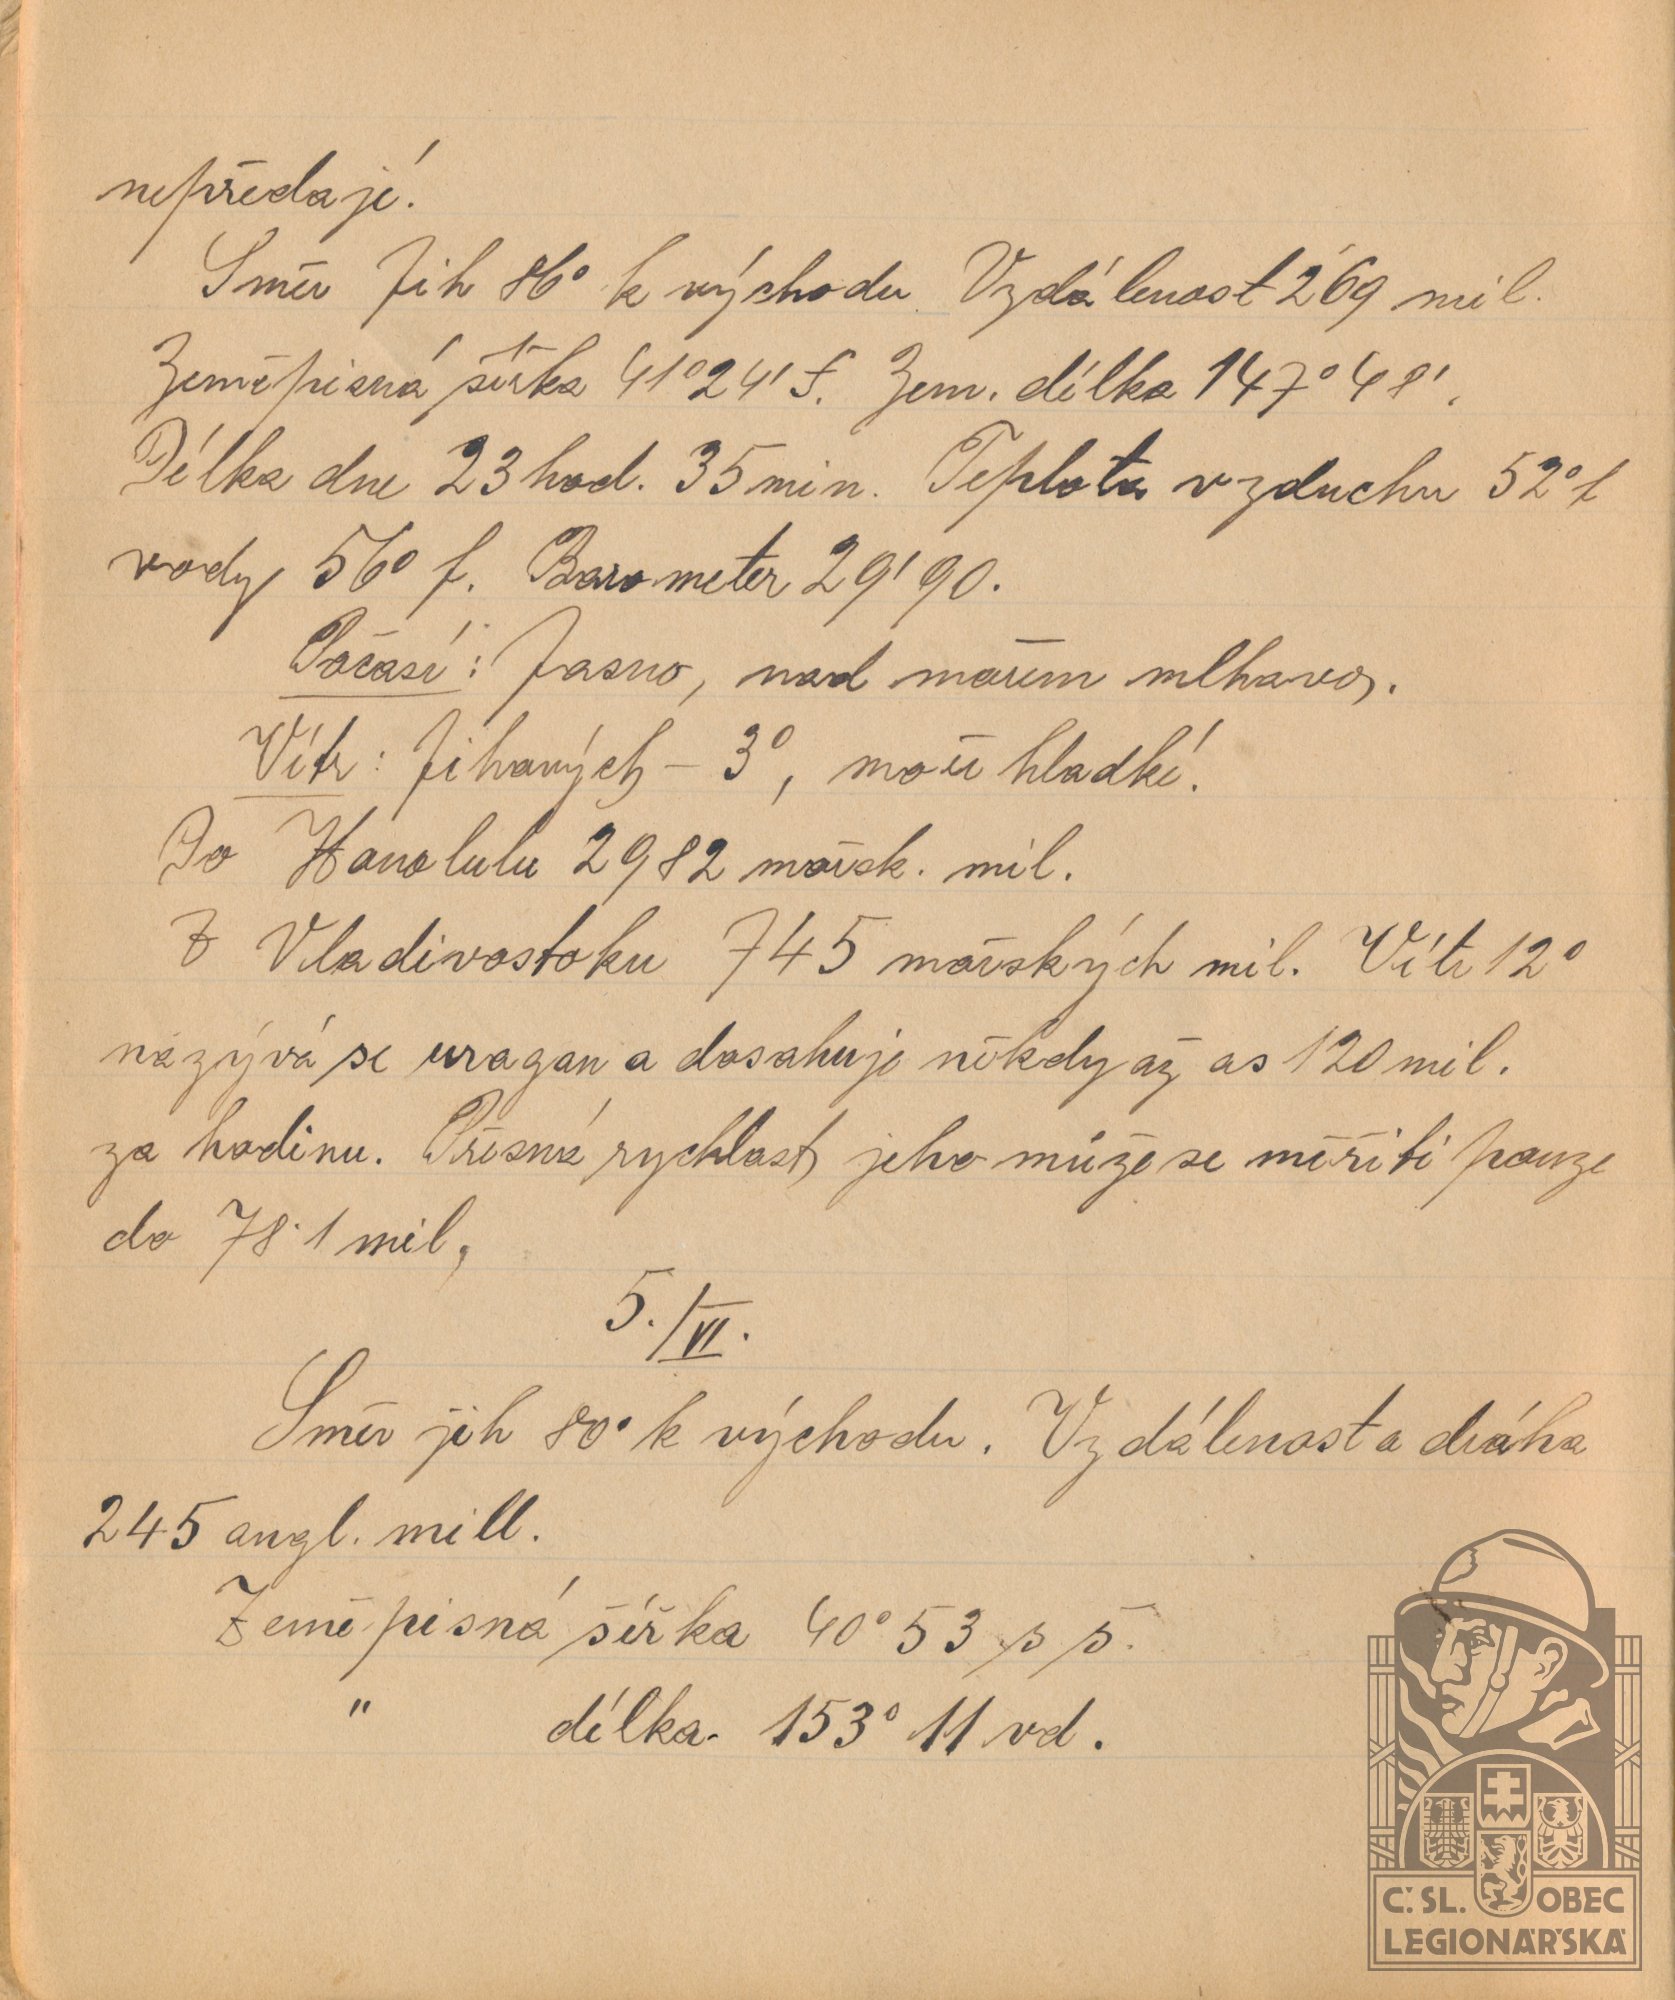 nepředají.
Směr Jih 86° k východu. Vzdálenost 269 mil.
Zeměpisná šířka 41°24' S. Zem. délka 147°48'.
Délka dne 23 hod. 35 min. Teplota vzduchu 52° f
vody 56° f. Barometer 29'90.
Počasí: Jasno, nad mořem mlhavo.
Vítr: Jihových – 3°, moře hladké.
Do Honolulu 2982 mořsk. mil.
Z Vladivostoku 745 mořských mil. Vítr 12°
nazývá se uragan a dosahuje někdy až as 120 mil.
za hodinu. Přesná rychlost jeho může se měřiti pouze
do 78·1 mil,
5./VI.
Směr jih 80° k východu. Vzdálenost a dráha
245 angl. mill.
Zeměpisná šířka 40° 53 s š.
" délka. 153° 11 vd.
Č. SL. OBEC
LEGIONÁŘSKÁ